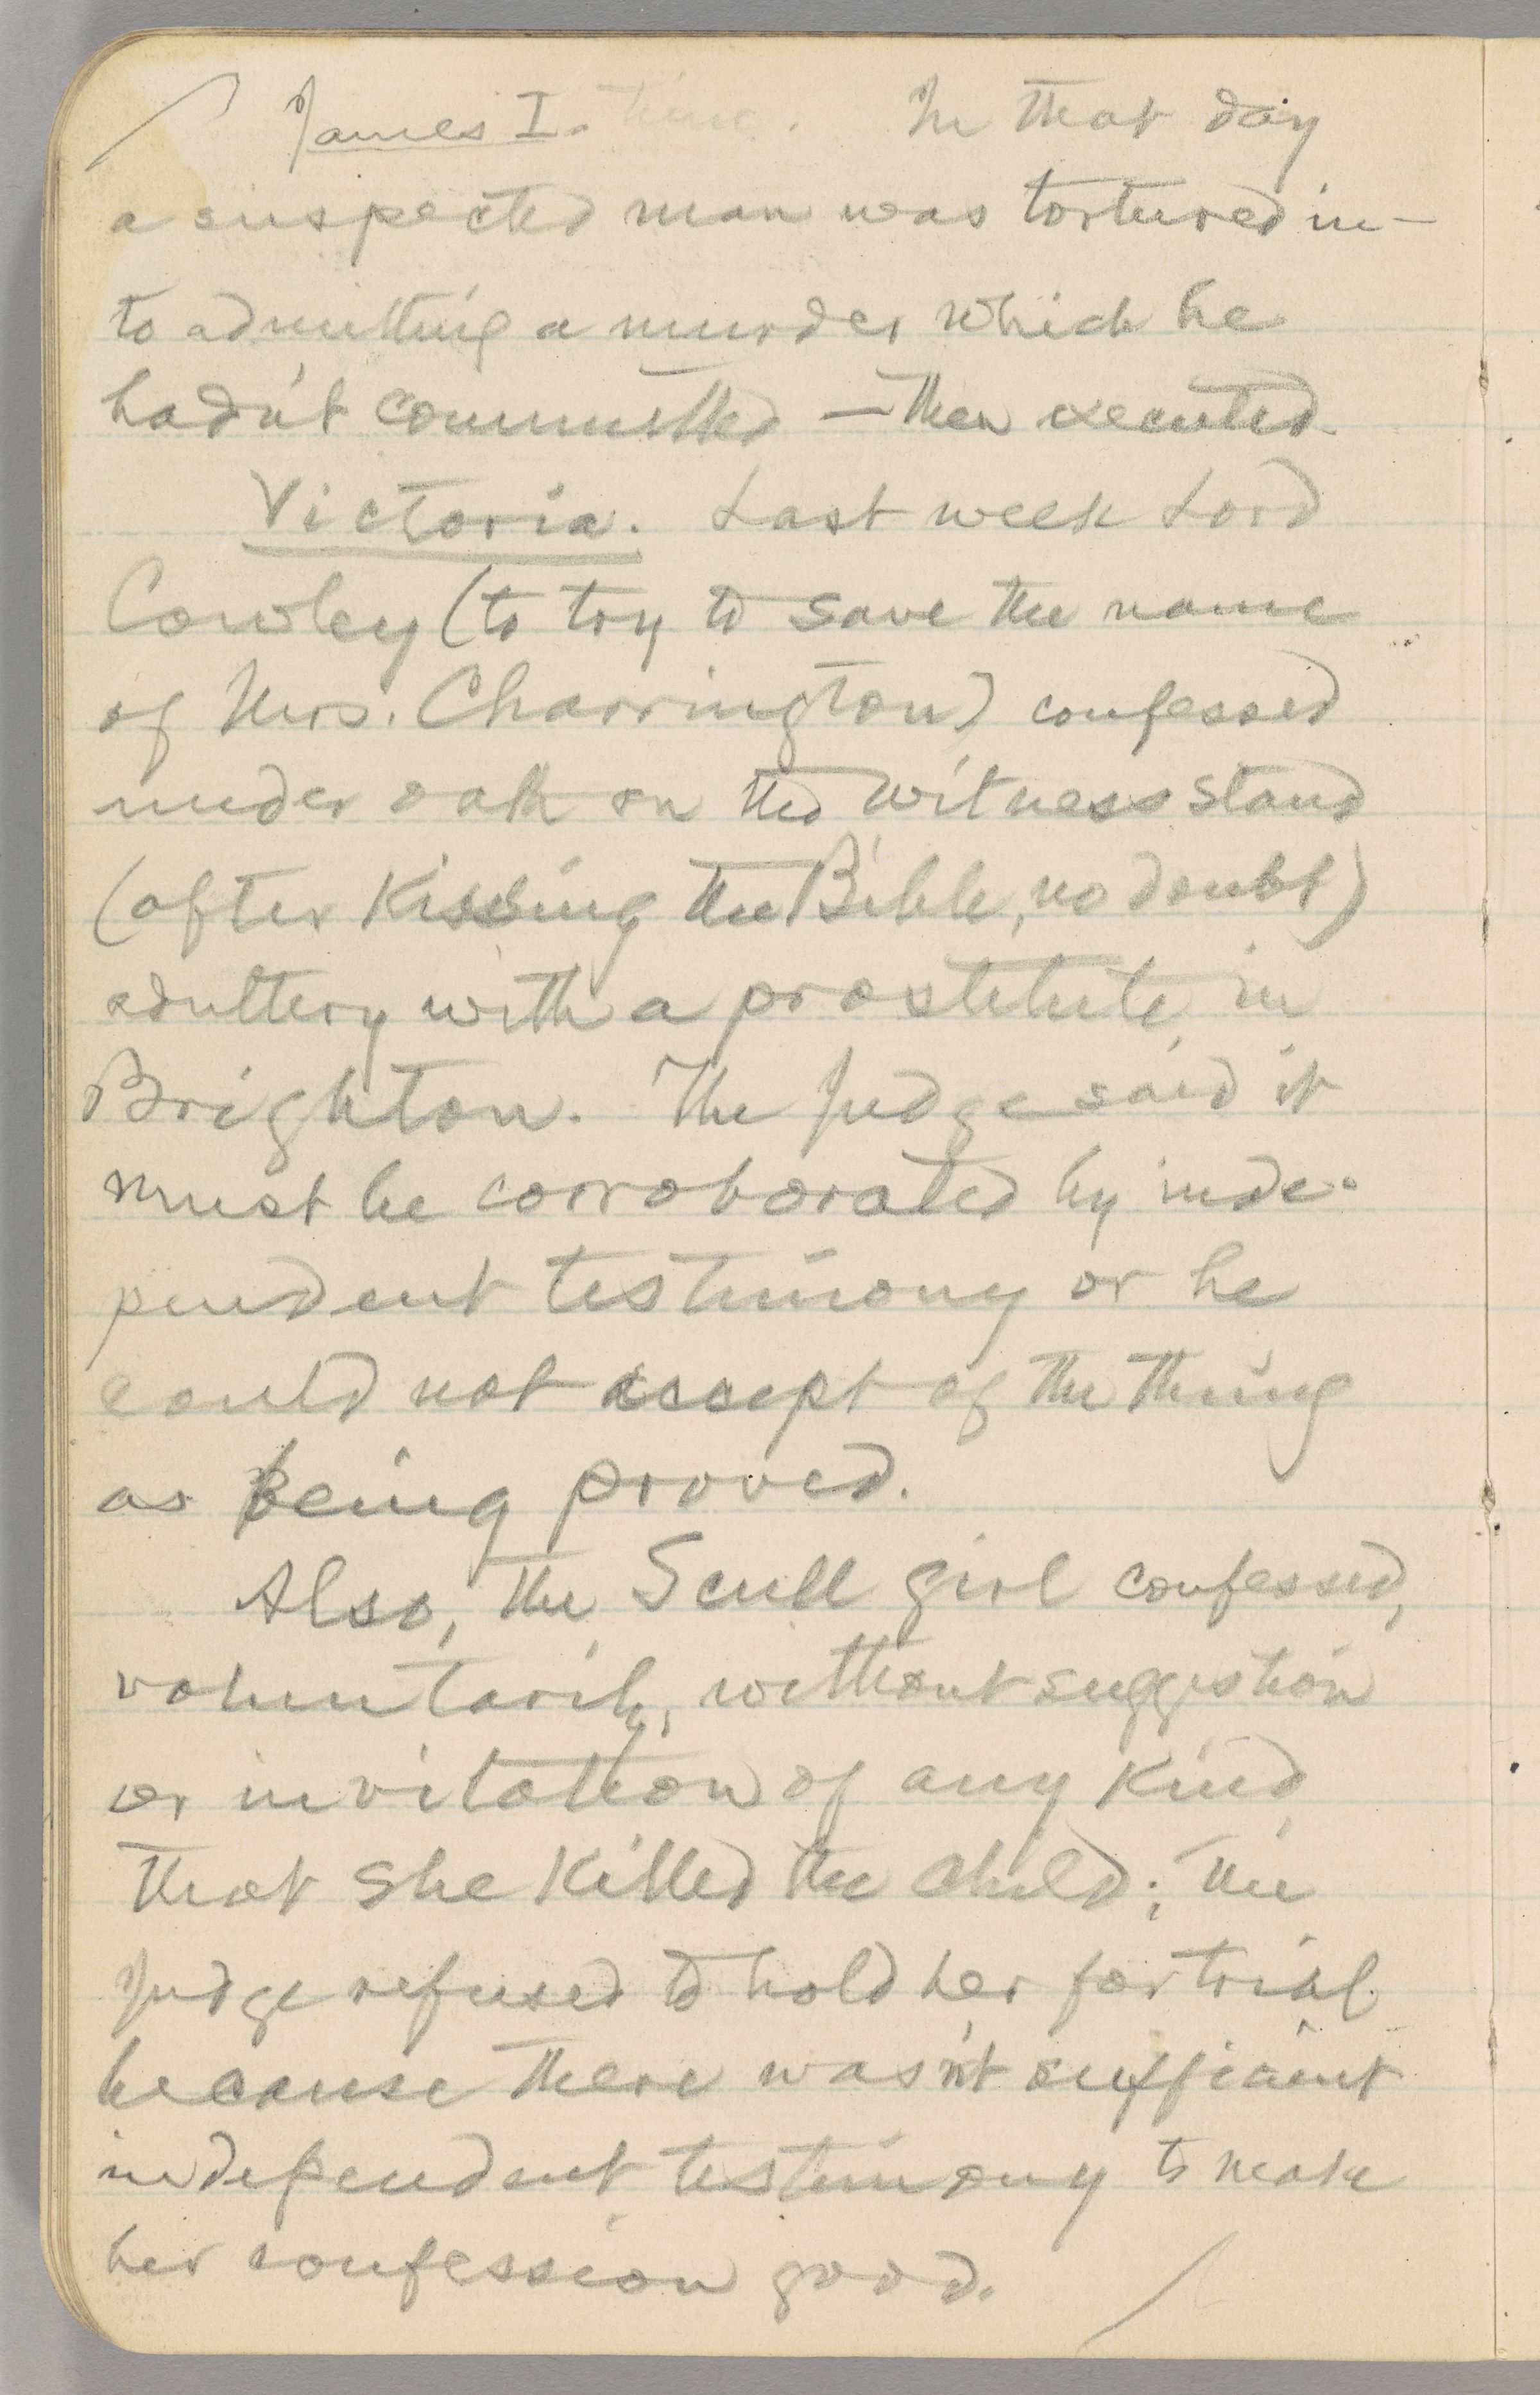 James I. time. In that day
a suspected man was tortured in-
to admitting a murder which he
hadn't committed — then executed.
Victoria. Last week Lord
Cowley (to try to save the name
of Mrs. Charrington) confessed
under oath on the witness stand
(after kissing the Bible, no doubt)
adultery with a prostitute in
Brighton. The judge said it
must be corroborated by inde-
pendent testimony or he
could not accept of the thing
as being proved.
Also, the Scull girl confessed,
voluntarily, without suggestion
or invitation of any kind,
that she killed the child; the
judge refused to hold her for trial
because there wasn't sufficient
independent testimony to make
her confession good.